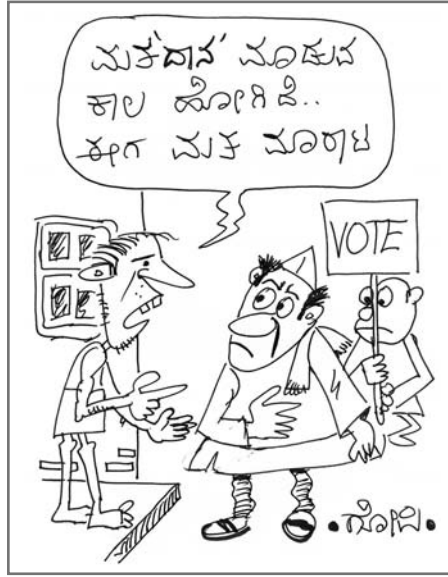 ಮತ'ದಾನ' ಮಾಡುವ
ಕಾಲ ಹೋಗಿದೆ..
ಈಗ ಮತ ಮಾರಾಟ
VOTE
•ಗೋಪಿ•